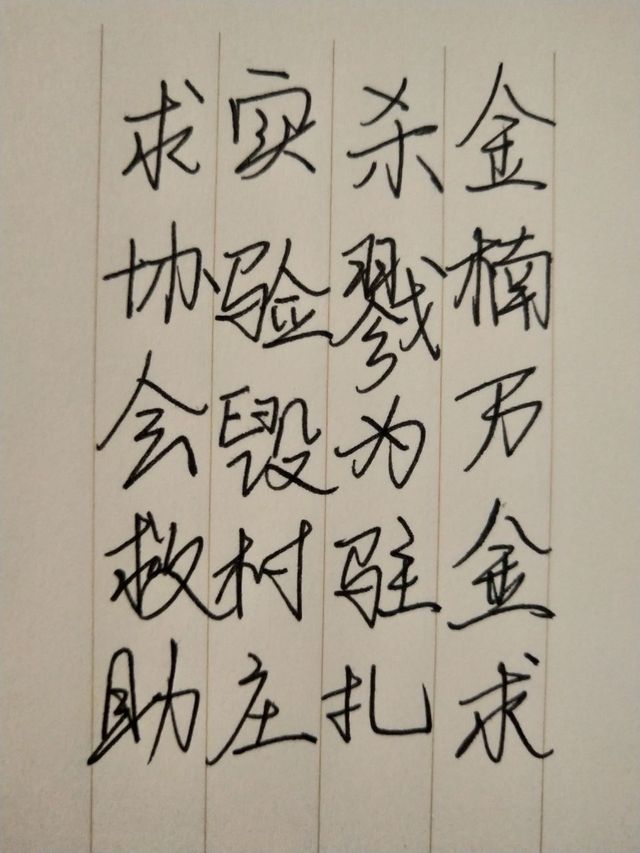 金楠万金求
杀戮为驻扎
实验毁村庄
求协会救助